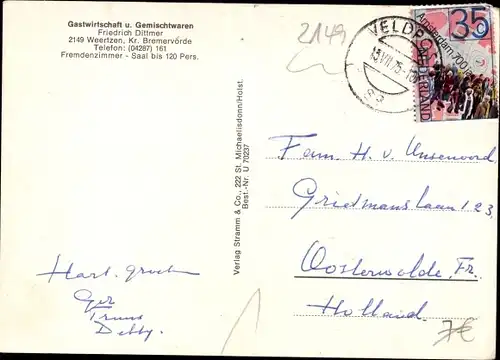 Gastwirtschaft u. Gemischtwaren
Friedrich Dittmer
2149 Weertzen, Kr. Bremervörde
Telefon: (04287) 161
Fremdenzimmer - Saal bis 120 Pers.
Verlag Stramm & Co., 222 St. Michaelisdonn/Holst.
Best.-Nr. U 70237
2149
VELDP
15 VII 75
35
Amsterdam 700
NEDERLAND
Fam. H. v. Unsenoord,
Grietmanslaan 123,
Oosterwolde, Fr.
Holland.
Hart. groeten
Ger
Truus
Debby.
7€